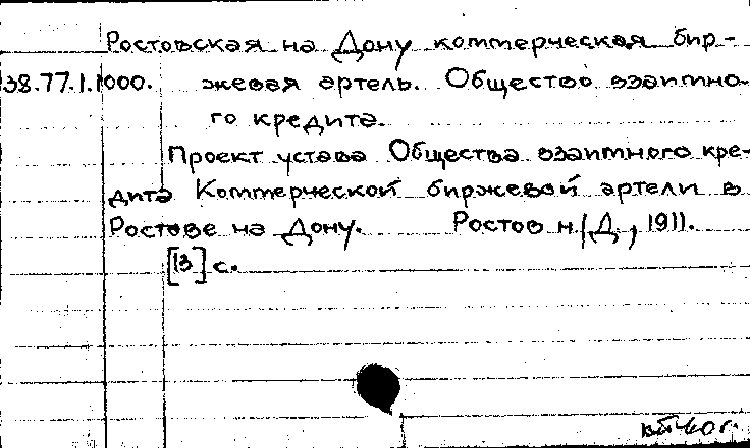 Ростовская на Дону коммерческая бир-
38.77.1.1000. жевая артель. Общество взаимно-
го кредита.
Проект устава Общества взаимного кре-
дита Коммерческой биржевой артели в
Ростове на Дону. Ростов н/Д, 1911.
[13] с.